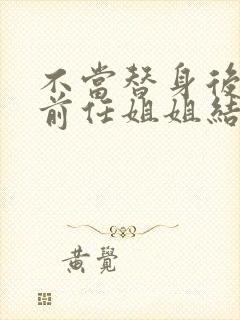 不當替身後
前任姐姐結
黃覺